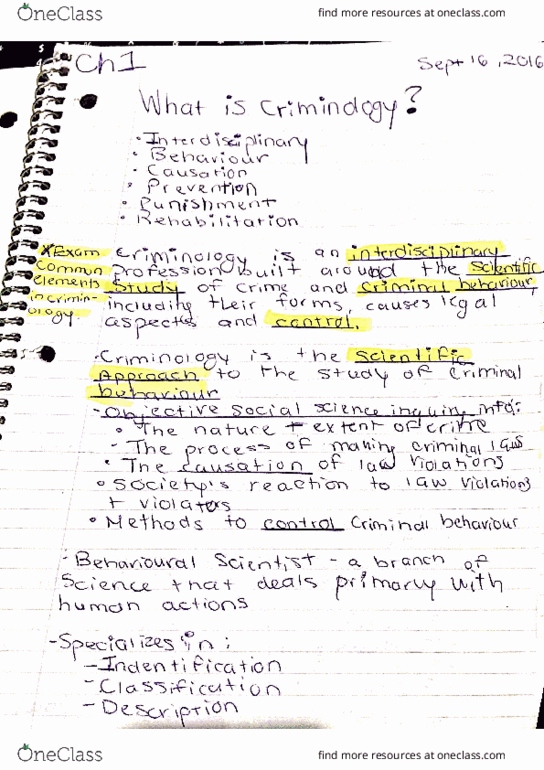 OneClass
find more resources at oneclass.com
Ch1
Sept 16, 2016
What is Criminology?
• Interdisciplinary
• Behaviour
• Causation
• Prevention
• Punishment
• Rehabilitation
*Exam
Common
elements
in crimin-
ology.
Criminology is an interdisciplinary
profession built around the scientific
study of crime and criminal behaviour,
including their forms, causes legal
aspects and control.
• Criminology is the scientific
Approach to the study of criminal
behaviour
- Objective social science inquiry into:
• The nature + extent of crime
- The process of making criminal laws
• The causation of law violations
• Society's reaction to law violations
+ violators
• Methods to control Criminal behaviour
- Behavioural Scientist - a branch of
Science that deals primarly with
human actions
- Specializes in:
- Indentification
- Classification
- Description
OneClass
find more resources at oneclass.com